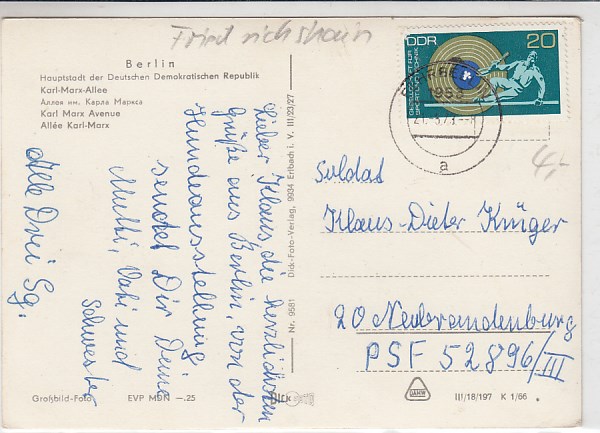 Friedrichshain
Berlin
Hauptstadt der Deutschen Demokratischen Republik
Karl-Marx-Allee
Аллея им. Карла Маркса
Karl Marx Avenue
Allée Karl-Marx
Lieber Klaus die herzlichsten
Grüße aus Berlin, von der
Hundeausstellung
sendet Dir Deine
Mutti, Vati und
Schwester
Alle Drei Sg.
Nr. 9581 Dick-Foto-Verlag, 9934 Erlbach i. V. III/23/27
DDR 20
GESELLSCHAFT FÜR
SPORT UND TECHNIK
a
4,-
Soldat
Klaus-Dieter Krüger
20 Neubrandenburg
PSF 52896/III
Großbild-Foto EVP MDN -.25
DICK
III/18/197 K 1/66